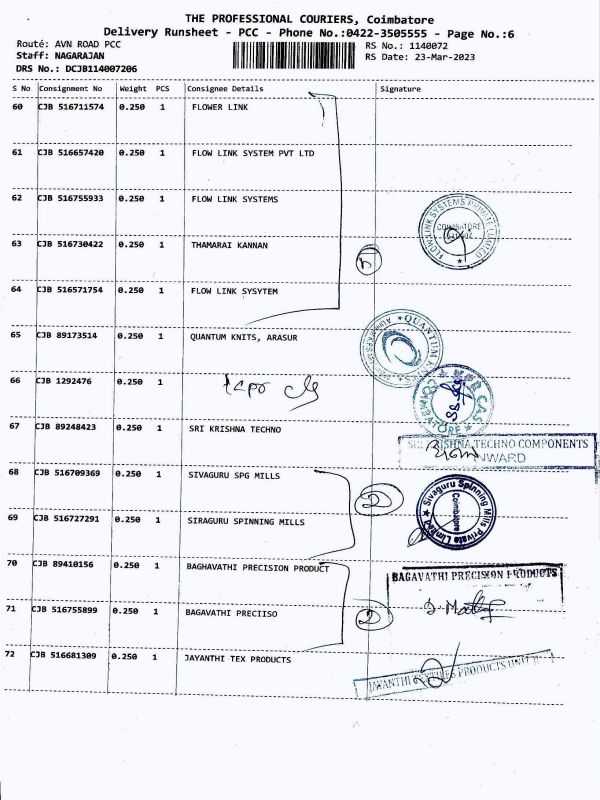 THE PROFESSIONAL COURIERS, Coimbatore
Delivery Runsheet - PCC - Phone No.:0422-3505555 - Page No.:6
Routé: AVN ROAD PCC
RS No.: 1140072
Staff: NAGARAJAN
RS Date: 23-Mar-2023
DRS No.: DCJB114007206
S No Consignment No Weight PCS Consignee Details Signature
60 CJB 516711574 0.250 1 FLOWER LINK
61 CJB 516657420 0.250 1 FLOW LINK SYSTEM PVT LTD
62 CJB 516755933 0.250 1 FLOW LINK SYSTEMS
FLOWLINK SYSTEMS PRIVATE LIMITED
COIMBATORE
63 CJB 516730422 0.250 1 THAMARAI KANNAN
64 CJB 516571754 0.250 1 FLOW LINK SYSYTEM
65 CJB 89173514 0.250 1 QUANTUM KNITS, ARASUR
QUANTUM
66 CJB 1292476 0.250 1
COIMBATORE
67 CJB 89248423 0.250 1 SRI KRISHNA TECHNO
SRI KRISHNA TECHNO COMPONENTS
INWARD
68 CJB 516709369 0.250 1 SIVAGURU SPG MILLS
2
Sivaguru Spinning Mills Private Limited
Coimbatore
69 CJB 516727291 0.250 1 SIRAGURU SPINNING MILLS
70 CJB 89410156 0.250 1 BAGHAVATHI PRECISION PRODUCT
BAGAVATHI PRECISION PRODUCTS
71 CJB 516755899 0.250 1 BAGAVATHI PRECIISO
2
72 CJB 516681309 0.250 1 JAYANTHI TEX PRODUCTS
JAYANTHI TEXTILES PRODUCTS UNIT